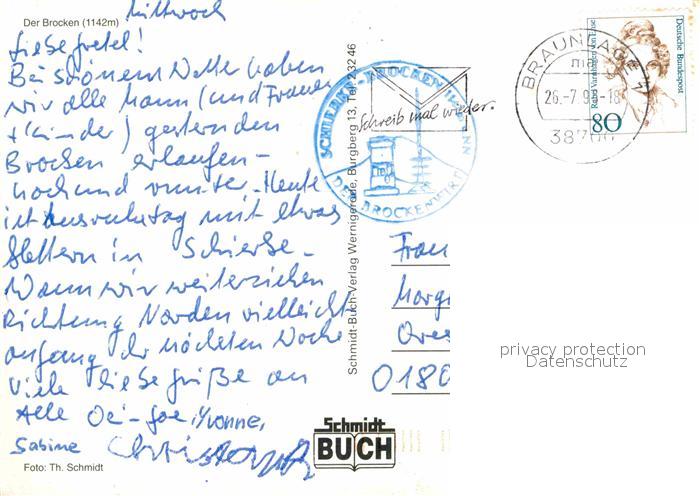 Der Brocken (1142m)
Mittwoch
Liebe Gretel!
Bei schönem Wetter haben
wir alle Mann (und Frauen
+ Kinder) gestern den
Brocken erlaufen -
hoch und runter. Heute
ist Ausruhtag mit etwas
klettern in Schierke.
Wann wir weiterziehen
Richtung Norden vielleicht
anfang der nächsten Woche
Viele liebe Grüße an
Alle
Yvonne,
Sabine
Foto: Th. Schmidt
Schmidt-Buch-Verlag Wernigerode, Burgberg 13, Tel. 2 32 46
SCHIERKE - BROCKEN
DER BROCKENWIRT
Schreib mal wieder.
BRAUNLAGE 1
26.-7.9 -18
38700
Deutsche Bundespost
80
Frau
0180
Schmidt
BUCH
privacy protection
Datenschutz